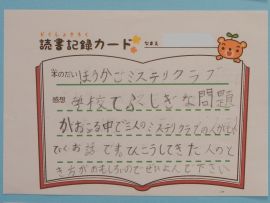 どくしょきろく
読書記録カード なまえ
本のだい ほうかごミステリクラブ
感想 学校でふしぎな問題
がおこる中で三人のミステリクラブの人が
いくお話です。ひこうしてきた人のと
き方がおもしろいのでぜひよんで下さい